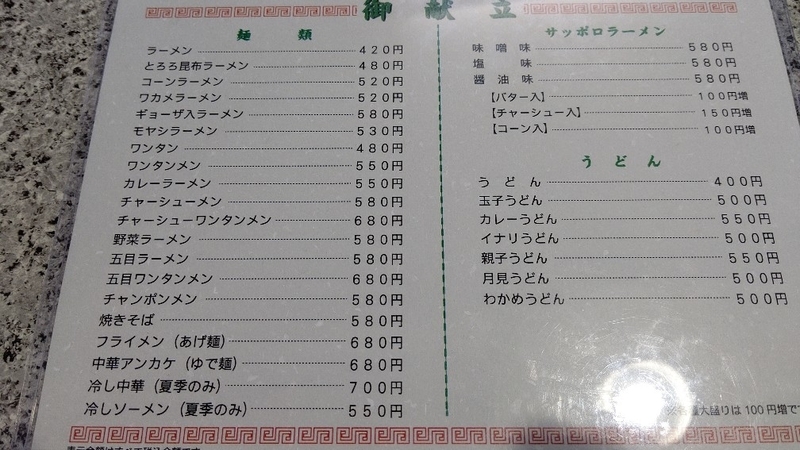 御献立
麺類
ラーメン 420円
とろろ昆布ラーメン 480円
コーンラーメン 520円
ワカメラーメン 520円
ギョーザ入ラーメン 580円
モヤシラーメン 530円
ワンタン 480円
ワンタンメン 550円
カレーラーメン 550円
チャーシューメン 580円
チャーシューワンタンメン 680円
野菜ラーメン 580円
五目ラーメン 580円
五目ワンタンメン 680円
チャンポンメン 580円
焼きそば 580円
フライメン（あげ麺） 680円
中華アンカケ（ゆで麺） 680円
冷し中華（夏季のみ） 700円
冷しソーメン（夏季のみ） 550円
サッポロラーメン
味噌味 580円
塩味 580円
醤油味 580円
【バター入】 100円増
【チャーシュー入】 150円増
【コーン入】 100円増
うどん
うどん 400円
玉子うどん 500円
カレーうどん 550円
イナリうどん 500円
親子うどん 550円
月見うどん 500円
わかめうどん 500円
大盛りは100円増で